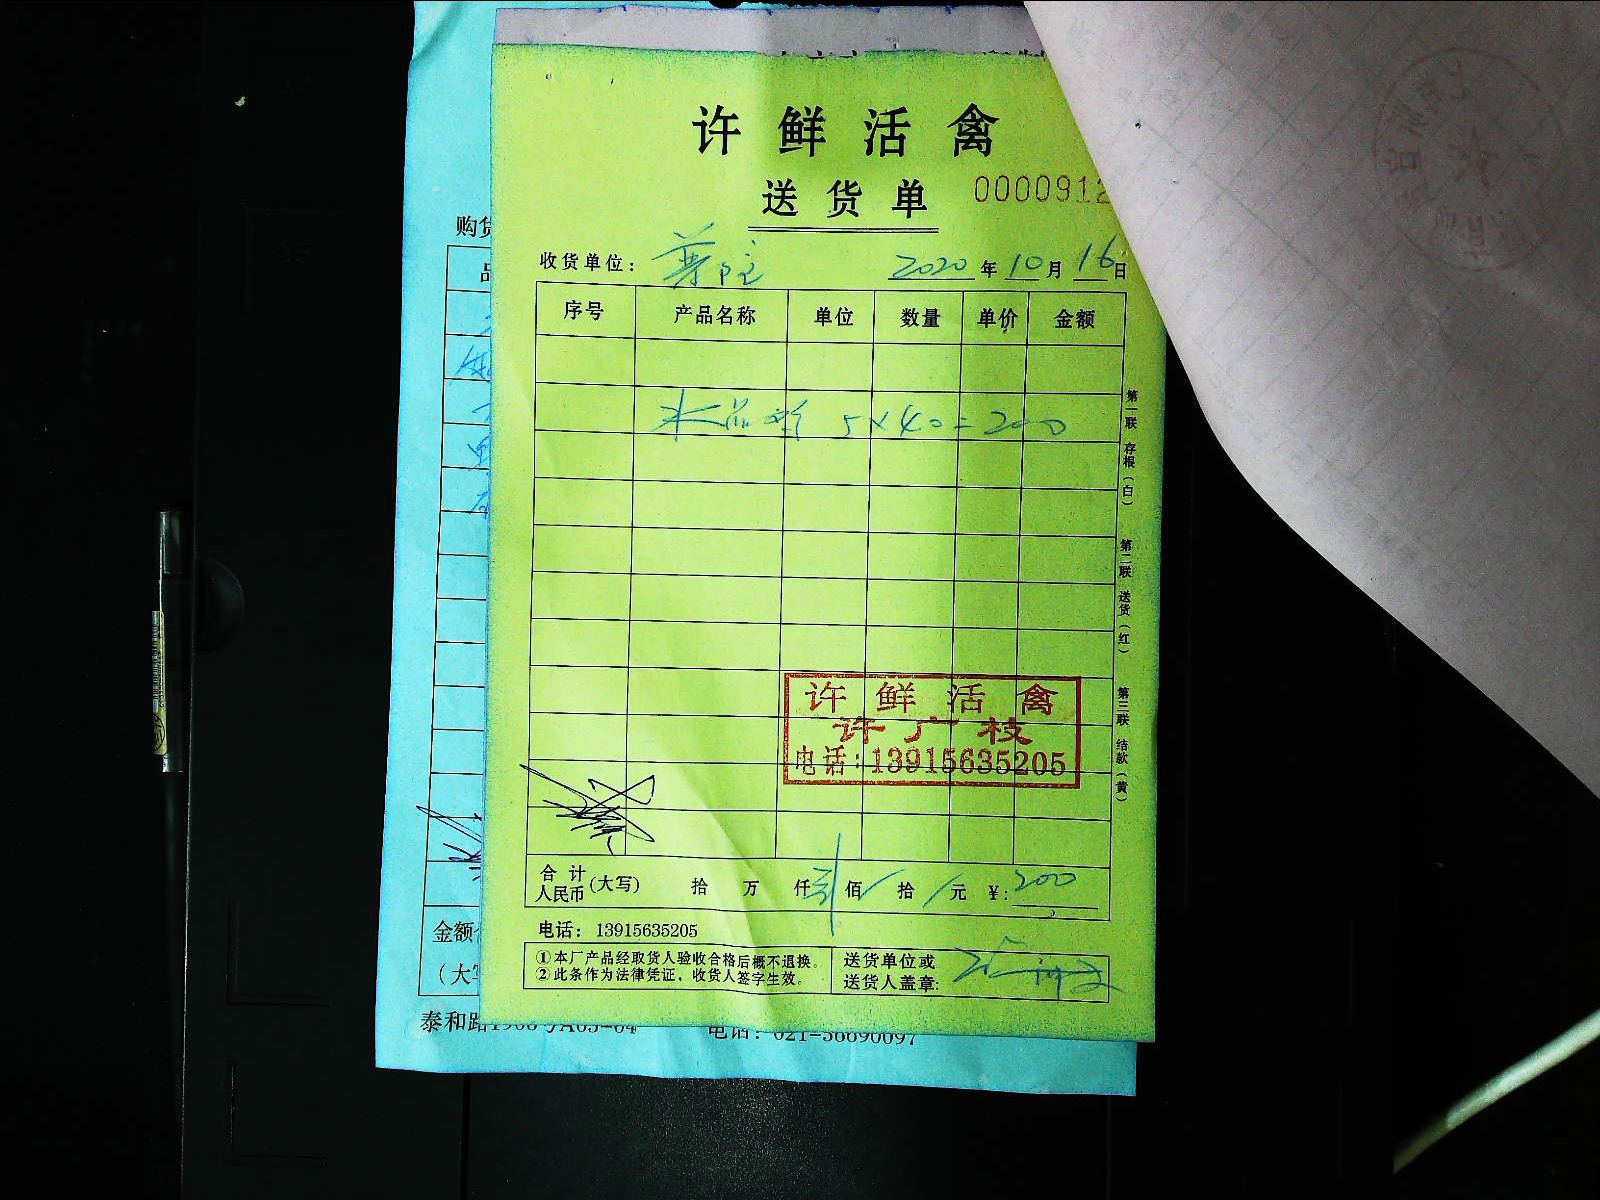 许鲜活禽
送货单 0000912
收货单位: 2020年10月16日
序号 产品名称 单位 数量 单价 金额
5×40=200
第一联 存根(白) 第二联 送货(红) 第三联 结款(黄)
许鲜活禽
许广枝
电话:13915635205
合计人民币(大写) 拾 万 仟 贰佰 拾 元 ¥:200
电话: 13915635205
①本厂产品经取货人验收合格后概不退换。
②此条作为法律凭证，收货人签字生效。
送货单位或
送货人盖章:
购货
品
金额
(大写
泰和路
电话: 021-56690097